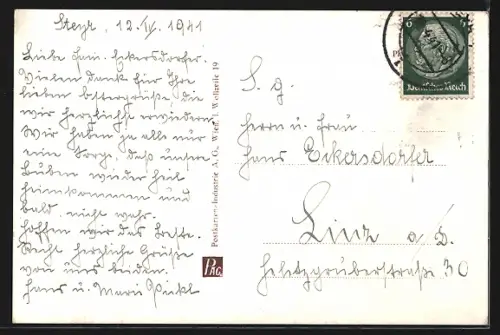 Steyr, 12. IV. 1941
Liebe Fam. Eckersdorfer.
Vielen Dank für Ihre
lieben Ostergrüße, die
wir herzlichst erwidern.
Wir haben ja alle nur
eine Sorge, daß unsere
Buben wieder heil
heimkommen und
bald. nicht wahr.
Hoffen wir das Beste.
Recht herzliche Grüße
von uns beiden.
Hans u. Marie
Postkarten-Industrie A. G., Wien, I. Wollzeile 19
PAG
6 6
S. g.
Herrn u. Frau
Hans Eckersdorfer
Linz a/D.
straße 30